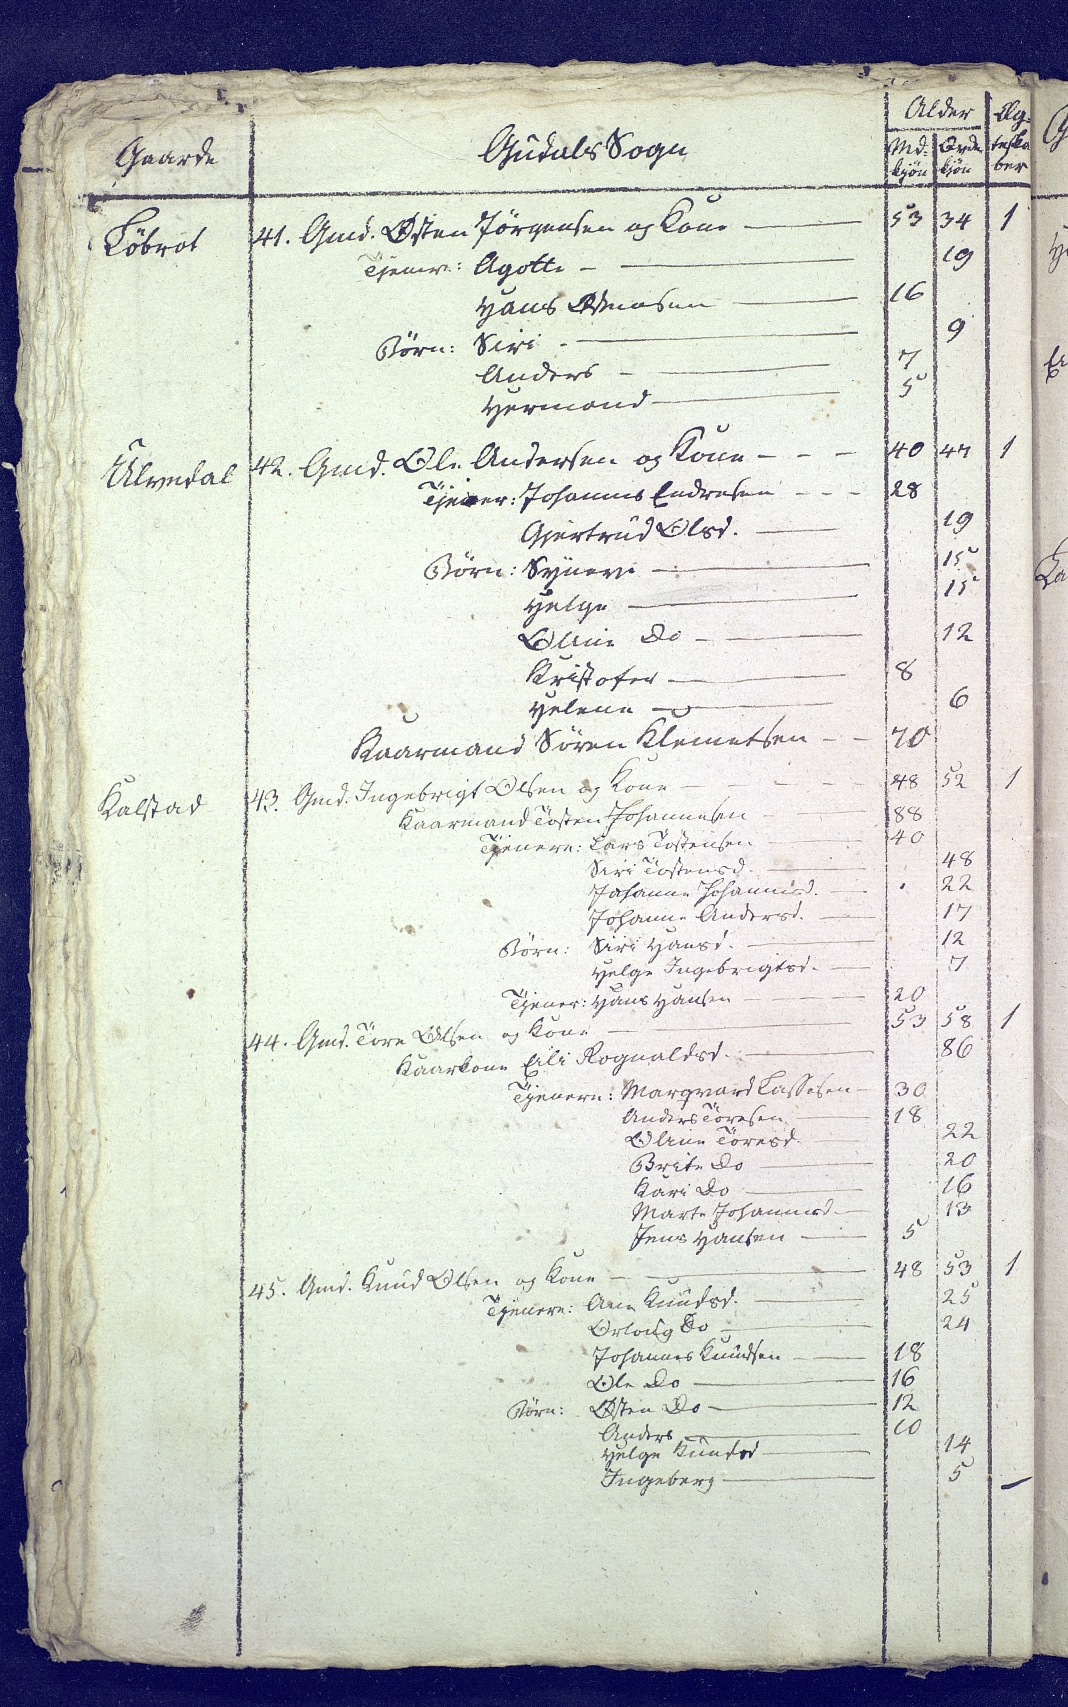 Gaarde Gudals Sogn Alder Æg-
Md- Qvde teska
kjön kjön ber
Löbrot 41. Gmd. Østen Jörgensen og Kone 53 34 1
Tjenere: Agotte 19
Hans Østensen 16
Börn: Siri 9
Anders 7
Hermond 5
Ulvedal 42. Gmd. Ole Andersen og Kone 40 44 1
Tjener: Johannes Endresen 28
Gjertrud Olsd. 19
Börn: Syneve 15
Helge 15
Oline Do 12
Kristofer 8
Helene 6
Kaarmand Sören Klemetsen 70
Kalstad 43. Gmd. Ingebrigt Olsen og Kone 48 52 1
Kaarmand Tosten Johannesen 88
Tjenere: Lars Tostensen 40
Siri Tostensd. 48
Johanne Johannesd. 22
Johanne Andersd. 17
Börn: Siri Hansd. 12
Helge Ingebrigtsd. 7
Tjener: Hans Hansen 20
44. Gmd. Töre Olsen og Kone 53 58 1
Kaarkone Eili Rognaldsd. 86
Tjenere: Marqvard Lassesen 30
Anders Töresen 18
Oline Töresd. 22
Brite Do 20
Kari Do 16
Marte Johannesd. 13
Jens Hansen 5
45. Gmd. Knud Olsen og Kone 48 53 1
Tjenere: Ane Knudsd. 25
Do 24
Johannes Knudsen 18
Ole Do 16
Börn: Østen Do 12
Anders 10
Helge Knudsd 14
Ingeberg 5